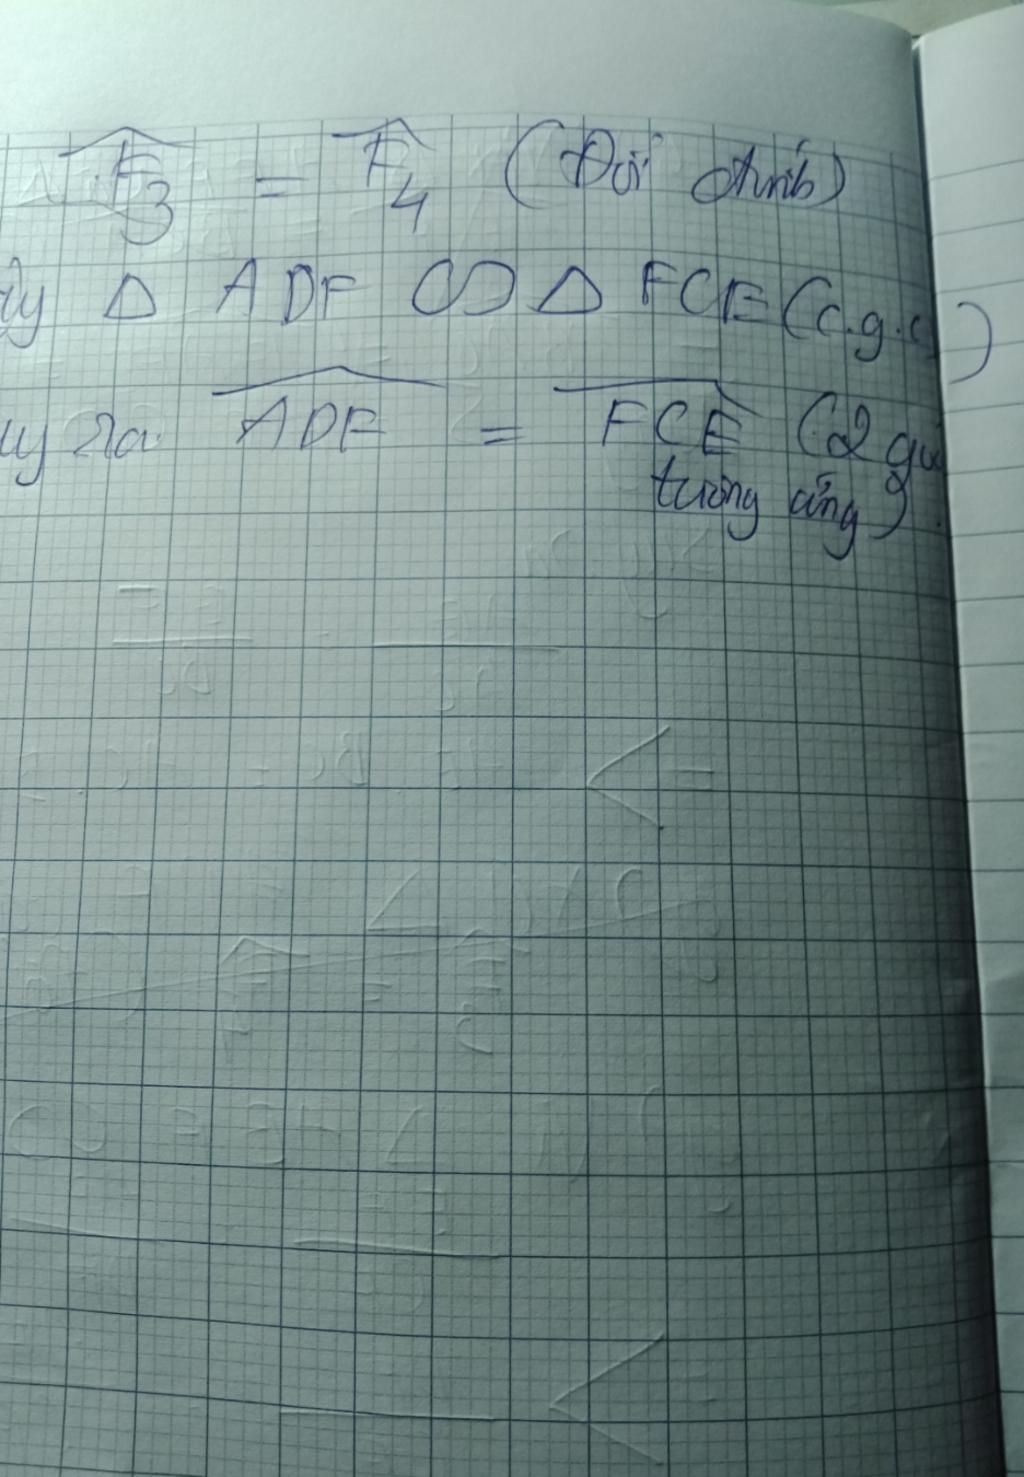 F̂3 = F̂4 (Đối đỉnh)
ậy Δ ADF ∽ Δ FCE (c.g.c)
uy ra ADF = FCE (2 góc
tương ứng).